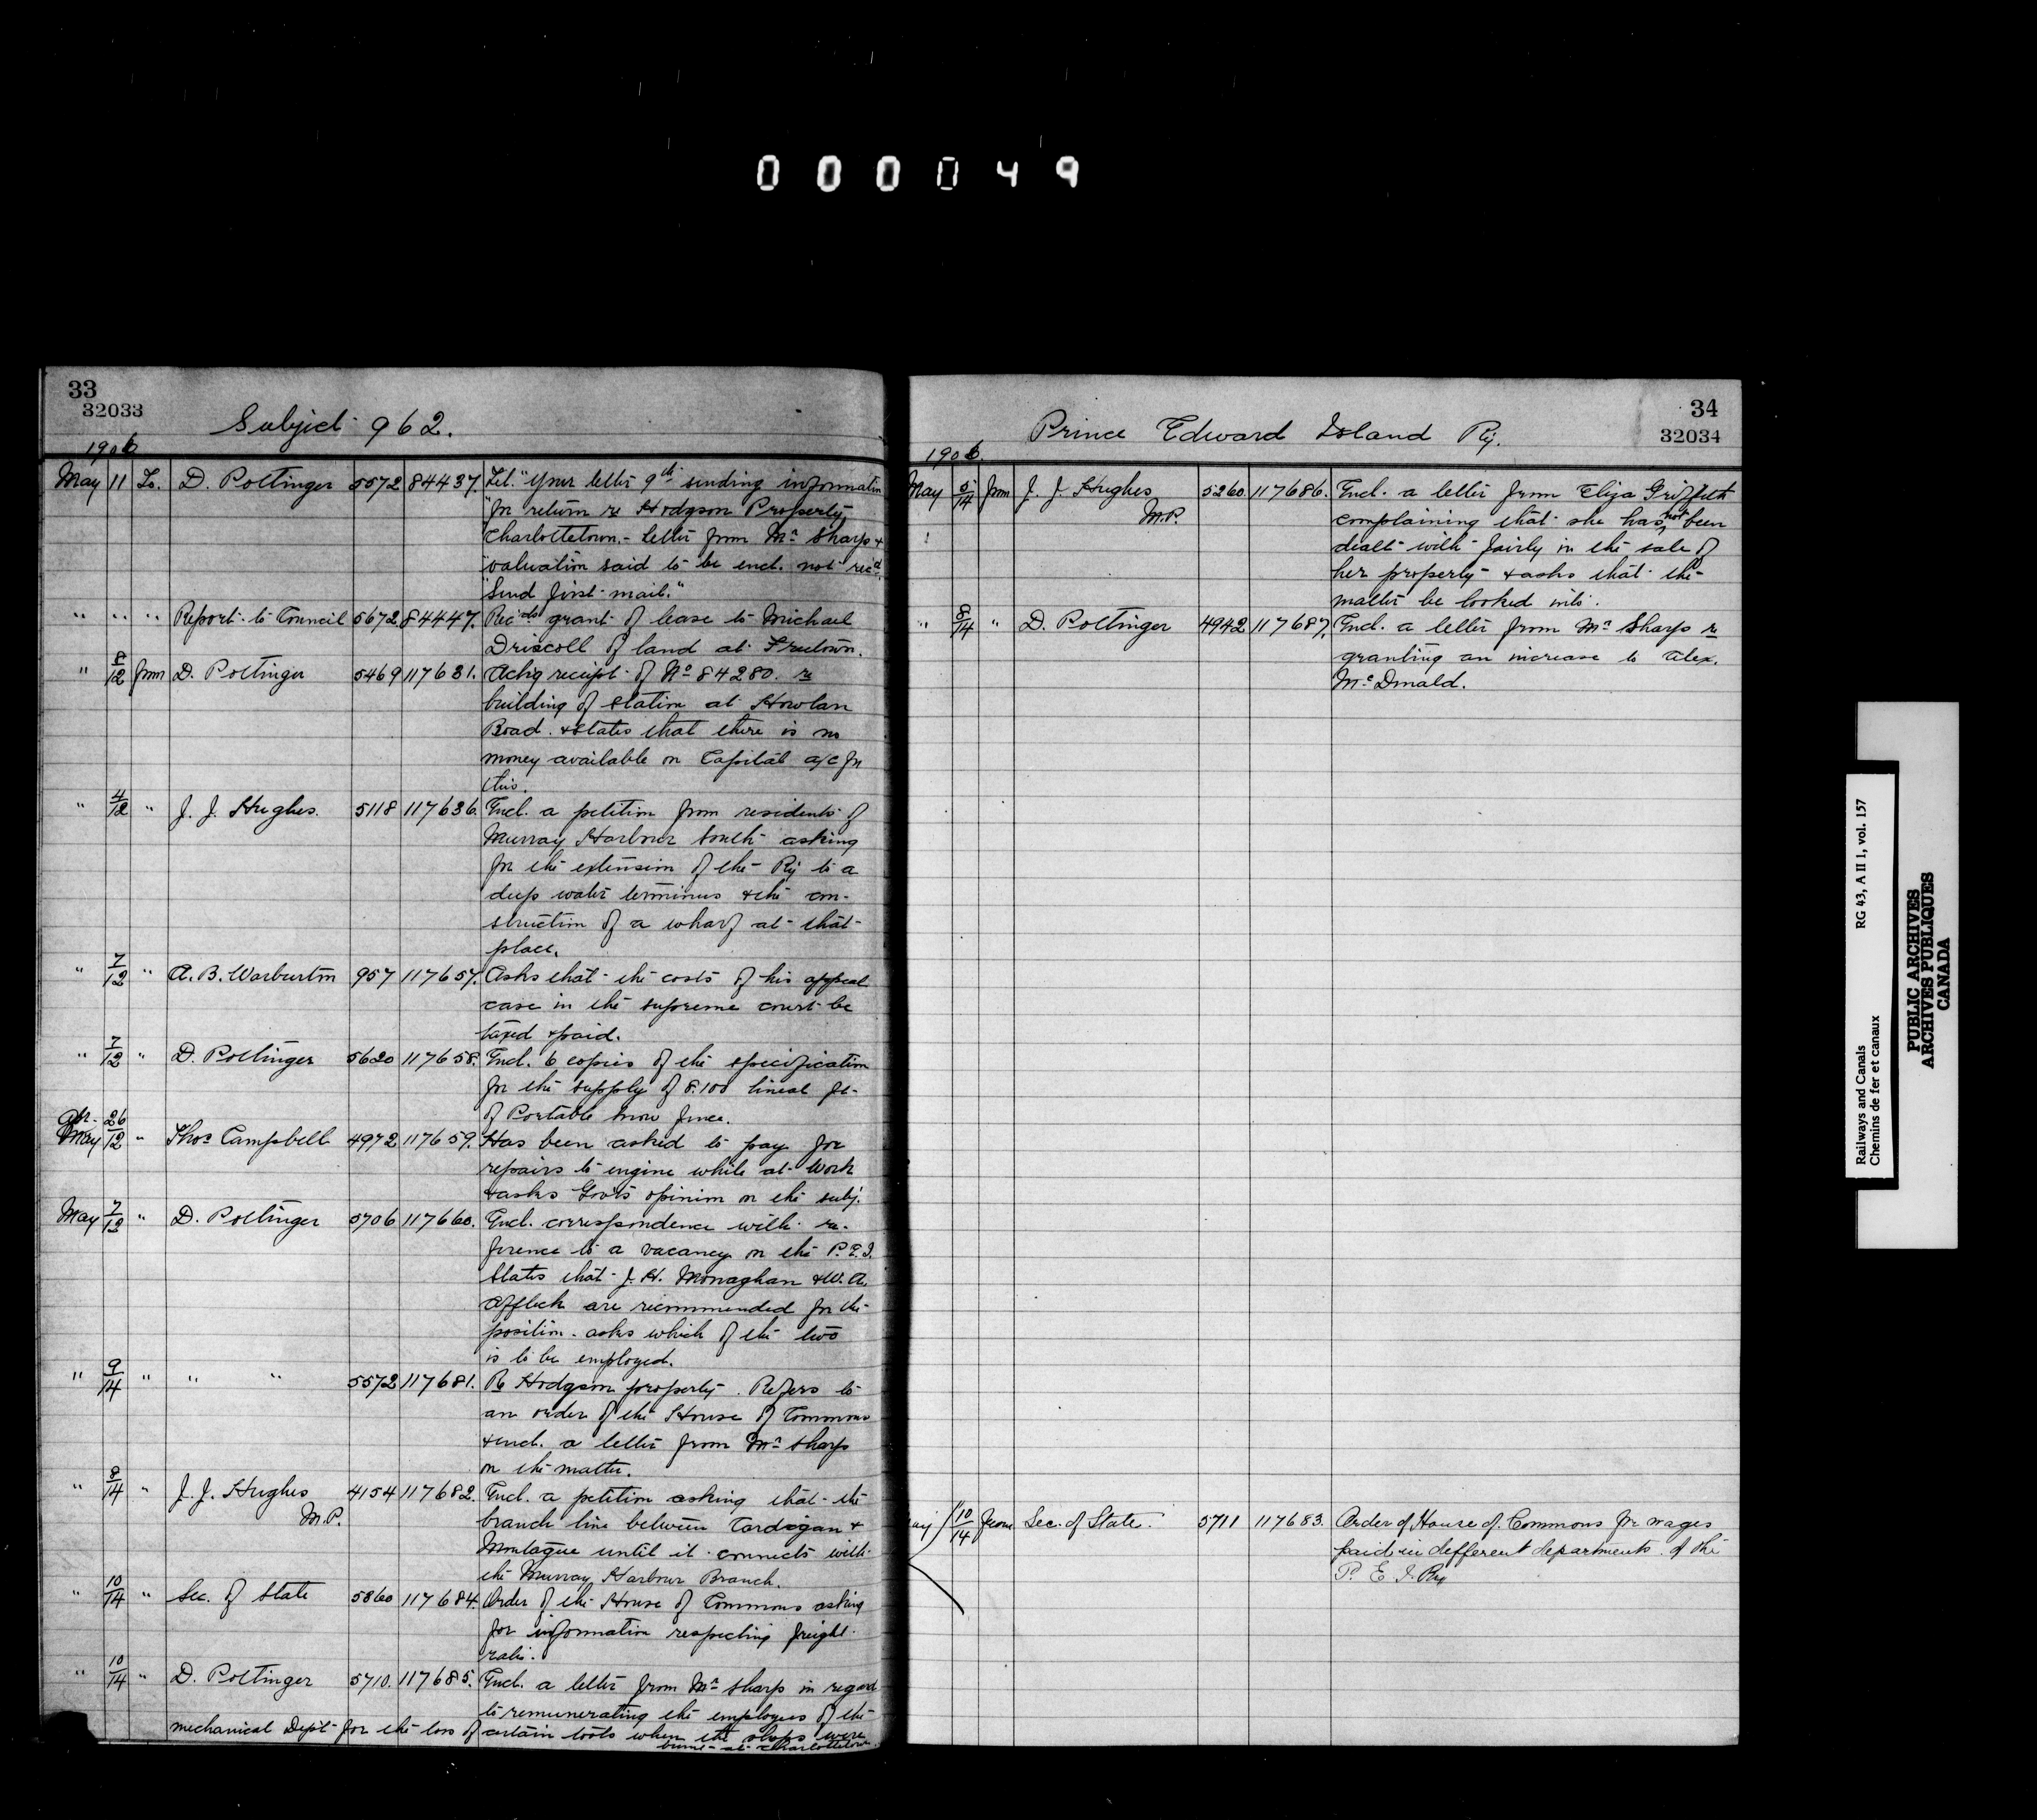 000049
33
32033
Subject 962.
1906
May 11 To. D. Pottinger 5572 84437. Tel. "Your letter 9th sending information
"for return re Hodgson Property
Charlottetown. - Letter from Mr Sharp &
"valuation said to be encl. not rec'd.
"Send first mail."
" " " Report to Council 5672 84447. Rec'ds grant of lease to Michael
Driscoll of land at Freetown.
" 8/12 from D. Pottinger 5469 117631. Ack'g receipt of No 84280. re
building of station at Howlan
Road. & states that there is no
money available on Capital a/c for
this.
" 4/12 " J. J. Hughes. 5118 117636. Encl. a petition from residents of
Murray Harbour South asking
for the extension of the Ry to a
deep water terminus & the con-
struction of a wharf at that
place.
" 7/12 " A. B. Warburton 957 117657. Asks that the costs of his appeal
case in the supreme court be
taxed & paid.
" 7/12 " D. Pottinger 5620 117658. Encl. 6 copies of the specification
for the supply of 8.100 lineal ft.
of Portable snow fence.
Apr. 26
May /12 " Thos Campbell 4972 117659. Has been asked to pay for
repairs to engine while at work
& asks Gov'ts opinion on the subj.
May 7/12 " D. Pottinger 5706 117660. Encl. correspondence with re-
ference to a vacancy on the P.E.I.
States that J. H. Monaghan & W. A.
Affleck are recommended for the
position. asks which of the two
is to be employed.
" 9/14 " " " 5572 117681. Re Hodgson property. Refers to
an order of the House of Commons
& encl. a letter from Mr Sharp
on the matter.
" 8/14 " J. J. Hughes 4154 117682. Encl. a petition asking that the
M.P. branch line between Cardigan &
Montague until it connects with
the Murray Harbour Branch.
" 10/14 " Sec. of State 5860 117684. Order of the House of Commons asking
for information respecting freight
rates.
" 10/14 " D. Pottinger 5710. 117685. Encl. a letter from Mr Sharp in regard
to remunerating the employees of the
mechanical Dep't for the loss of certain tools when the shops were
burnt at Charlottetown.
34
32034
Prince Edward Island Ry.
1906.
May 5/14 from J. J. Hughes 5260. 117686. Encl. a letter from Eliza Griffith
M.P. complaining that she has not been
dealt with fairly in the sale of
her property & asks that the
matter be looked into.
" 8/14 " D. Pottinger 4942 117687. Encl. a letter from Mr Sharp re
granting an increase to Alex.
McDonald.
May 10/14 from Sec. of State. 5711 117683. Order of House of Commons for wages
paid in different departments of the
P. E. I. Ry
Railways and Canals RG 43, A II 1, vol. 157
Chemins de fer et canaux
PUBLIC ARCHIVES
ARCHIVES PUBLIQUES
CANADA